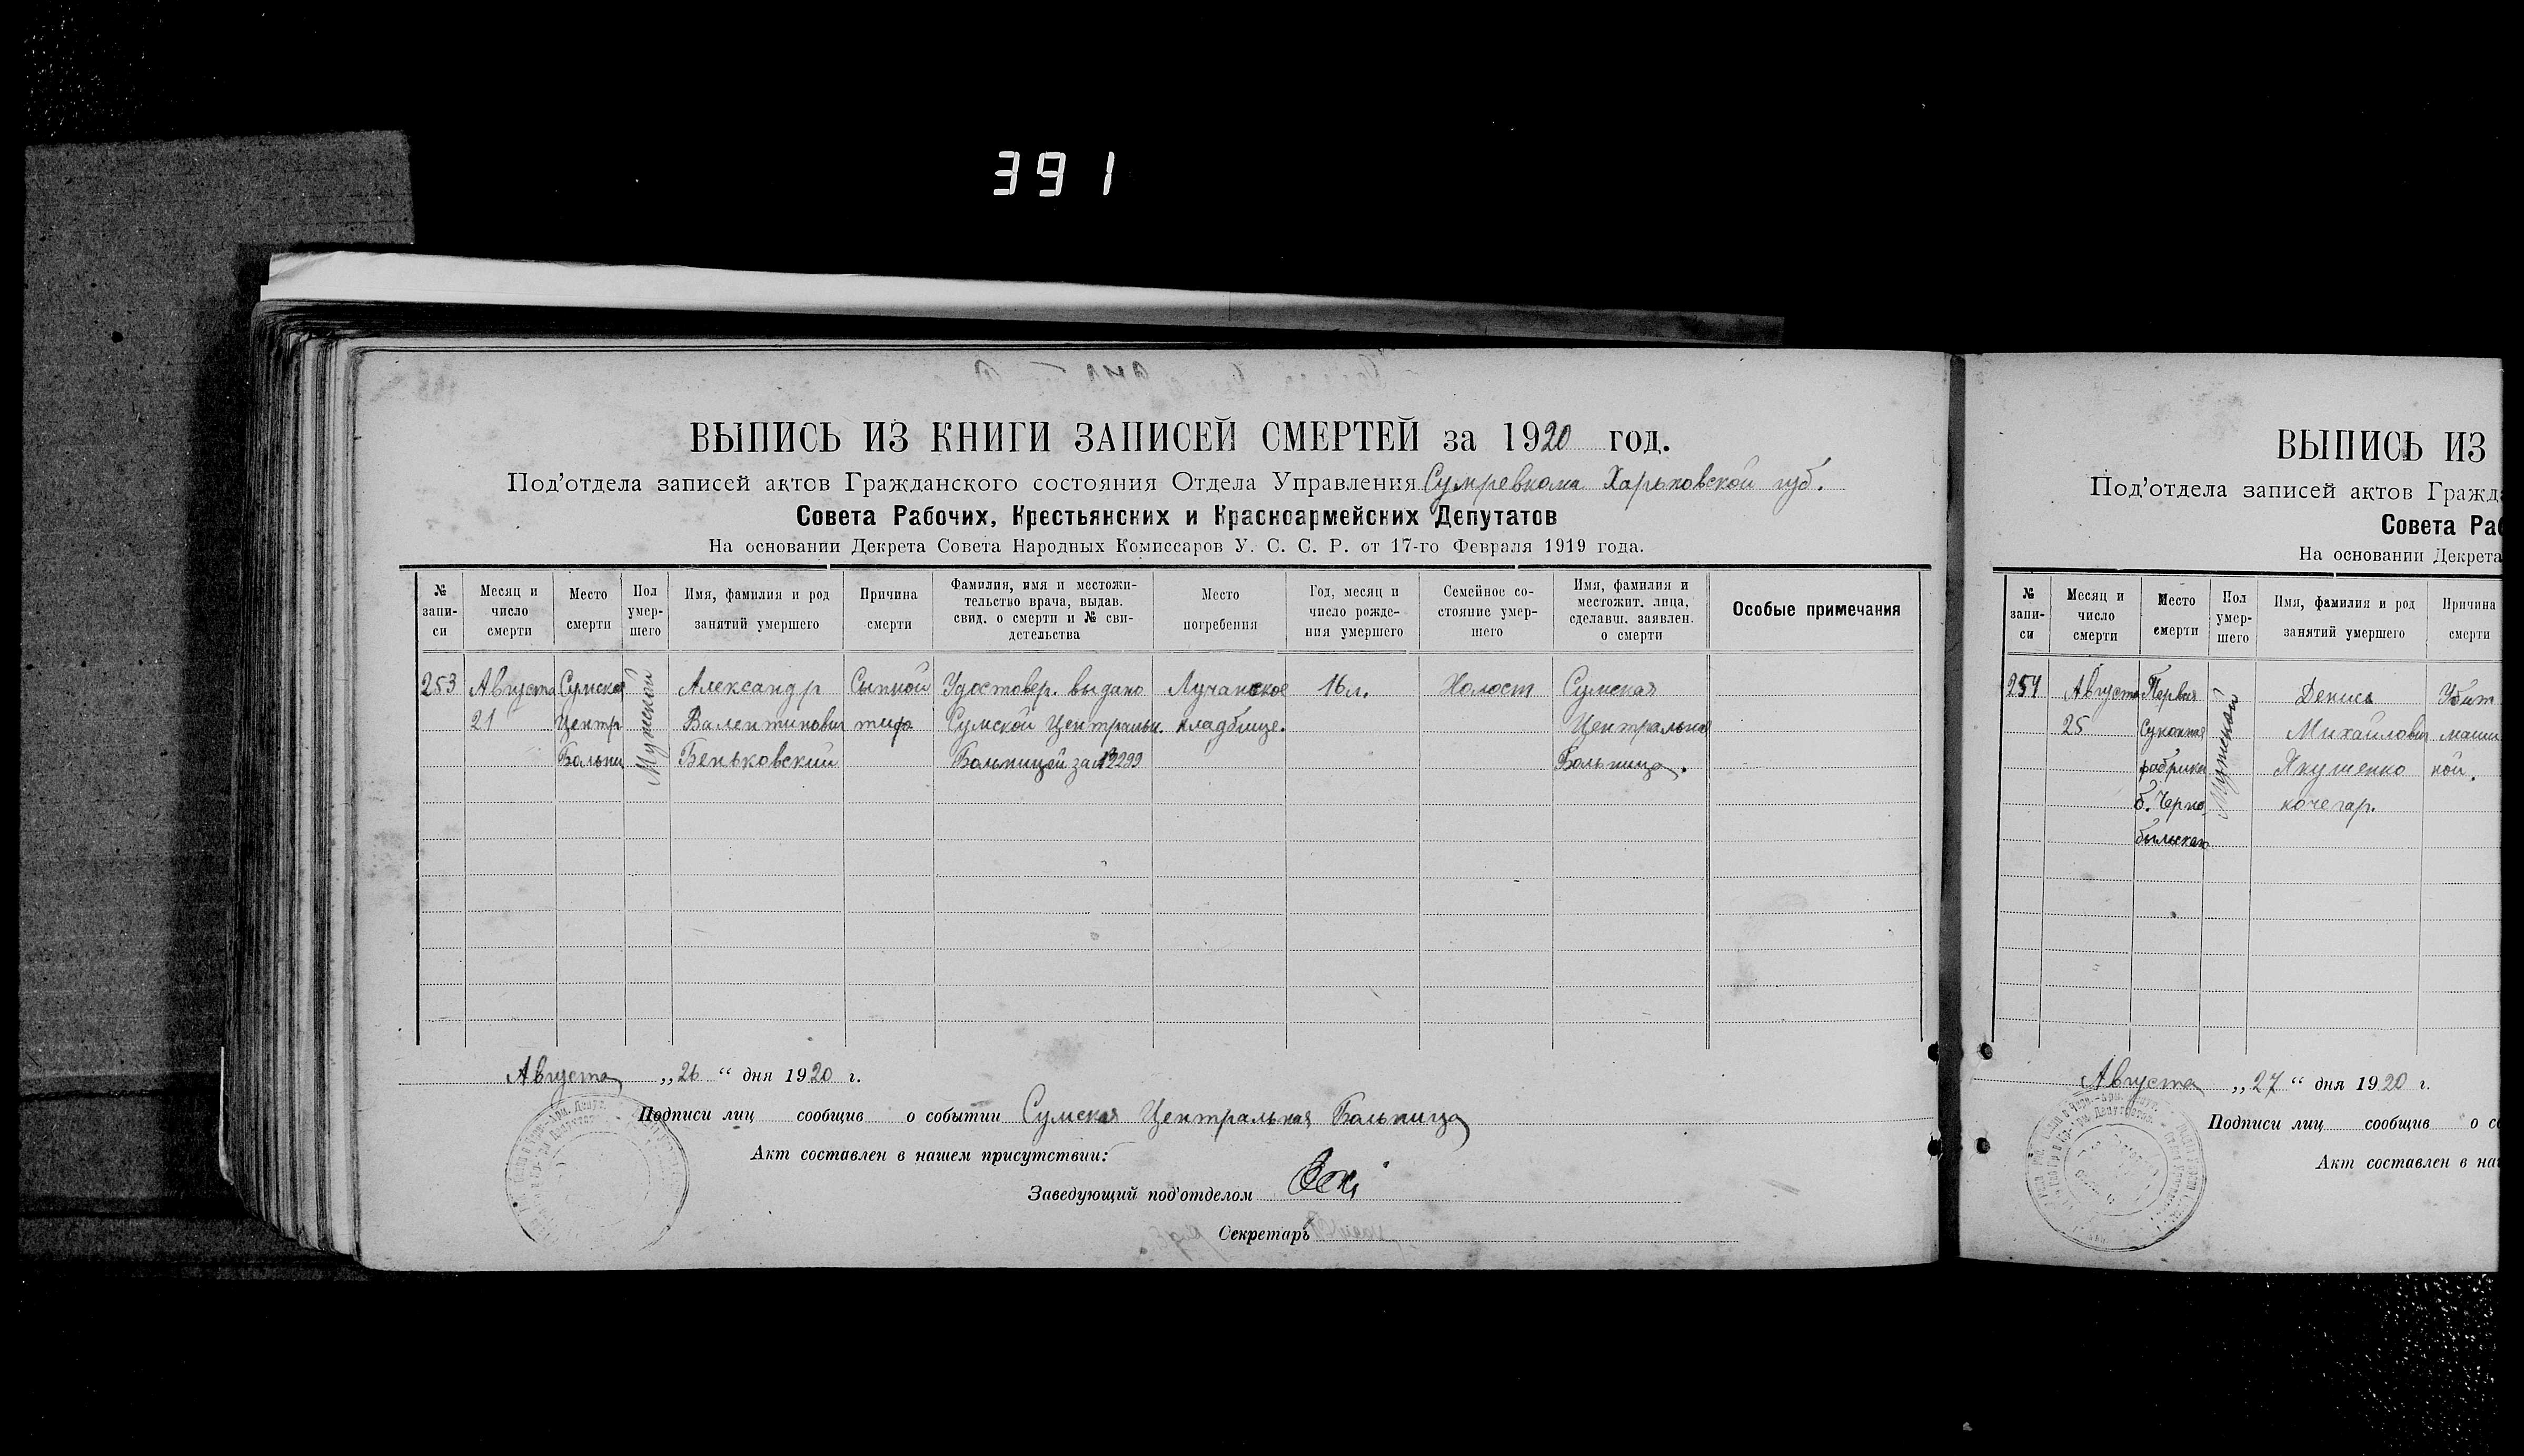 391
ВЫПИСЬ ИЗ КНИГИ ЗАПИСЕЙ СМЕРТЕЙ за 1920 год.
Под'отдела записей актов Гражданского состояния Отдела Управления Сумревкома Харьковской губ.
Совета Рабочих, Крестьянских и Красноармейских Депутатов
На основании Декрета Совета Народных Комиссаров У. С. С. Р. от 17-го Февраля 1919 года.
№ запи- си
Месяц и число смерти
Место смерти
Пол умер- шего
Имя, фамилия и род занятий умершего
Причина смерти
Фамилия, имя и местожи- тельство врача, выдав. свид. о смерти и № сви- детельства
Место погребения
Год, месяц и число рожде- ния умершего
Семейное со- стояние умер- шего
Имя, фамилия и местожит. лица, сделавш. заявлен. о смерти
Особые примечания
253 Августа Сумской Мужской Александр Сыпной Удостовер. выдано Лучанское 16 л. Холост Сумская
21 Центр Валентинович тиф Сумской Централ. кладбище. Центральная
Больни Беньковский Больницей за № 3299 Больница.
Августа „26“ дня 1920 г.
Подписи лиц сообщив о событии Сумская Центральная Больница
Акт составлен в нашем присутствии:
Заведующий под'отделом
Секретарь
ВЫПИСЬ ИЗ
Под'отдела записей актов Гражд
Совета Раб
На основании Декрета
№ запи- си
Месяц и число смерти
Место смерти
Пол умер- шего
Имя, фамилия и род занятий умершего
Причина смерти
254 Августа Первая Мужской Денись Убит
25 Суконная Михайлович маши
фабрика Якушенко ной.
б. Черно кочегар.
бильская
Августа „27“ дня 1920 г.
Подписи лиц сообщив о со
Акт составлен в наш